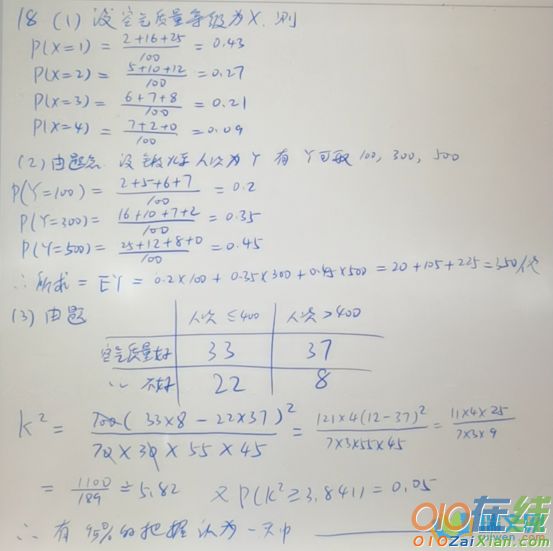 18 (1) 设空气质量等级为X, 则
P(X=1) = (2+16+25)/100 = 0.43
P(X=2) = (5+10+12)/100 = 0.27
P(X=3) = (6+7+8)/100 = 0.21
P(X=4) = (7+2+0)/100 = 0.09
(2) 由题意 设 人次为Y 有 Y可取 100, 300, 500
P(Y=100) = (2+5+6+7)/100 = 0.2
P(Y=300) = (16+10+7+2)/100 = 0.35
P(Y=500) = (25+12+8+0)/100 = 0.45
∴ 所求 = EY = 0.2×100 + 0.35×300 + 0.45×500 = 20+105+225=350
(3) 由题
人次≤400 人次>400
空气质量好 33 37
〃 不好 22 8
K² = 100(33×8-22×37)²/(70×30×55×45) = 121×4(12-37)²/(7×3×55×45) = 11×4×25/(7×3×9)
= 1100/189 ≐ 5.82 又 P(K²≥3.841) = 0.05
∴ 有 95% 的把握认为一天中
010在线
010ZaiXian.com